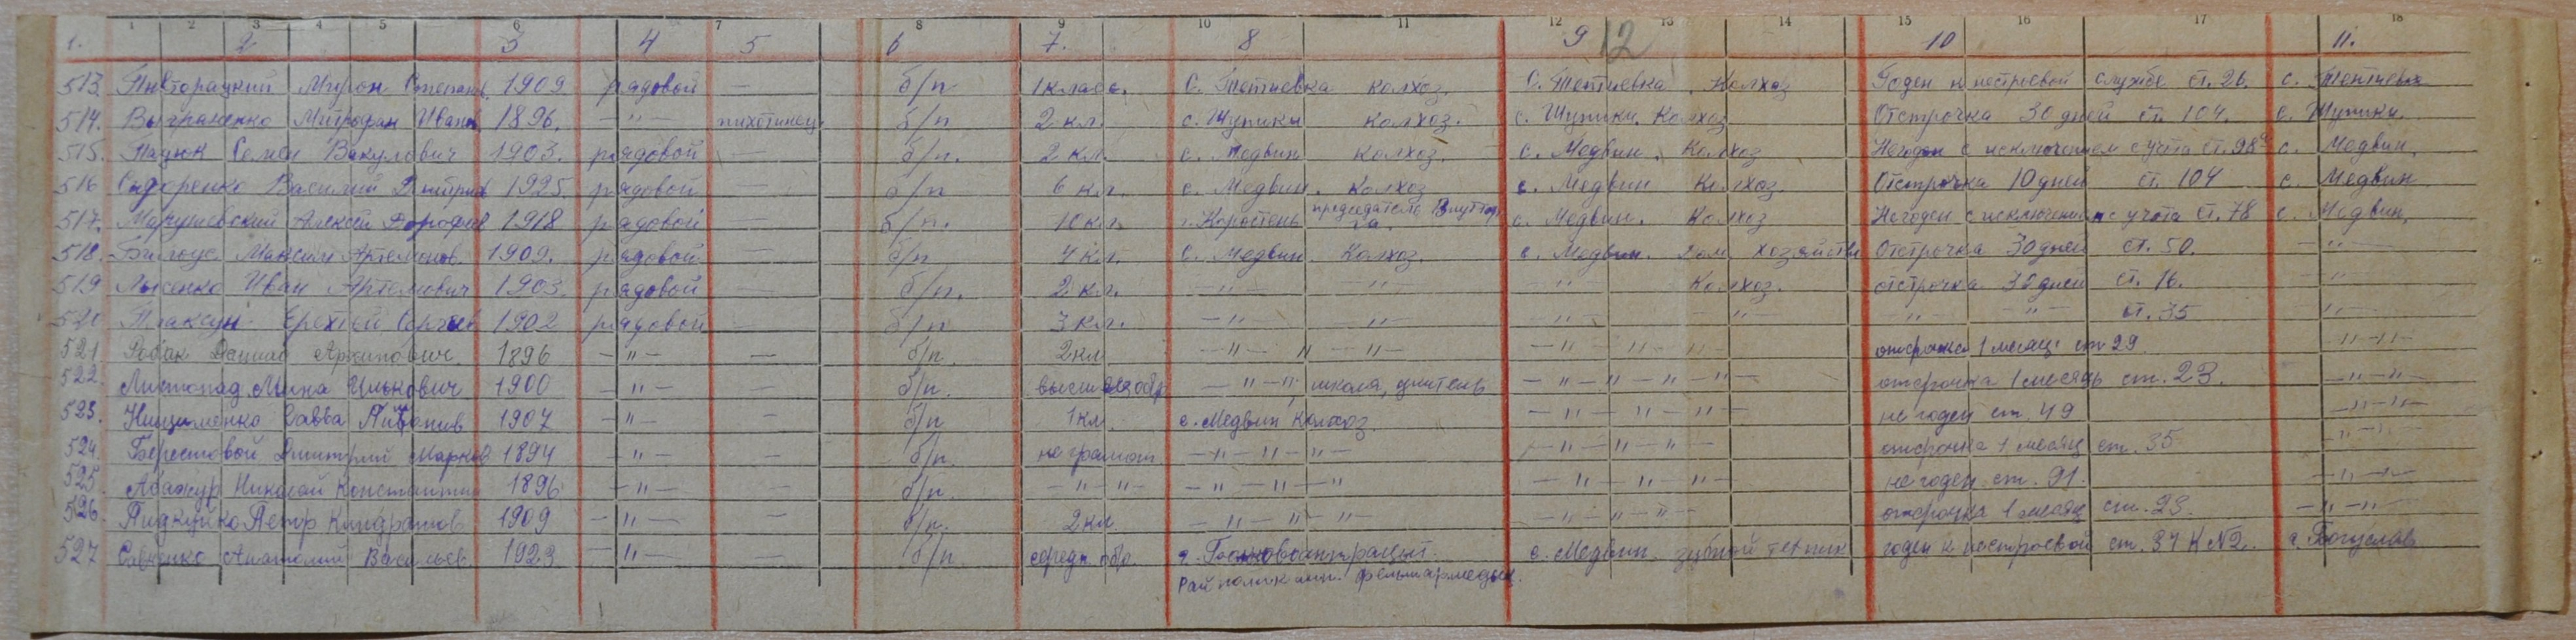 1 2 3 4 5 6 7 8 9 10 11 12 13 14 15 16 17 18
1. 2 3 4 5 6 7. 8 9 12 10 11.
513. Пивторацкий Мирон Степан. 1909 рядовой — б/п 1 класс. с. Тептиевка колхоз. с. Тептиевка. Колхоз Годен к нестроевой службе ст. 26. с. Тептиевка
514. Митрофан Иванов 1896. —"— пихотинец б/п 2 кл. с. Шупики колхоз. с. Шупики. Колхоз Отстрочка 30 дней ст. 104. с. Шупики.
515. Семен Вакулович 1903. рядовой — б/п. 2 кл. с. Медвин колхоз. с. Медвин. Колхоз Негоден с исключением с учета ст. 98 с. Медвин.
516 Сидоренко Василий Дмитриев 1925. рядовой — б/п 6 кл. с. Медвин. Колхоз с. Медвин Колхоз. Отстрочка 10 дней ст. 104 с. Медвин
517. Марушевский Алексей Дорофеев 1918 рядовой — б/п. 10 кл. г. Коростень председатель с. Медвин. Колхоз Негоден с исключением с учета ст. 78 с. Медвин.
518. Билоус Максим Артемонов. 1909. рядовой — б/п 4 кл. с. Медвин Колхоз. с. Медвин. дом хозяйства Отстрочка 30 дней ст. 50. —"—
519 Лысенко Иван Артемович 1903. рядовой — б/п. 2 кл. —"— —"— —"— Колхоз. отстрочка 30 дней ст. 16. —"—
520 Плаксун Ерохтей Сергеев 1902 рядовой — б/п 3 кл. —"— —"— —"— —"— —"— —"— ст. 35 —"—
521 Робак Данило Архипович. 1896 —"— — б/п. 2 кл —"— " —"— —"— "— "— отсрочка 1 месяц ст 29. —"—"—
522. Листопад Мина Илькович 1900 —"— — б/п. высшая обр —"—" школа, учитель —"—"—"—"— отсрочка 1 месяц ст. 23. —"—"—
523. Нищименко Савва Антонив 1907 —"— — б/п 1 кл. с. Медвин колхоз. —"—"—"— не годен ст. 49 —"—"—
524. Берестовой Дмитрий Марков 1894 —"— — б/п. не грамот —"—"—"— —"—"—"— отсрочка 1 месяц ст. 35 —"—"—
525. Абажур Николай Константин 1896 —"— — б/п. —"—"— —"—"—"— —"—"—"— не годен ст. 91. —"—"—
526. Пидкуйко Петр Киндратов 1909 —"— — б/п. 2 кл. —"—"—"— —"—"—"— отсрочка 1 месяц ст. 23. —"—"—
527 Савченко Анатолий Васильев. 1923 —"— — б/п средн. обр. с. Медвин зубной техник годен к нестроевой ст. 37 К №2. г. Богуслав
Рай